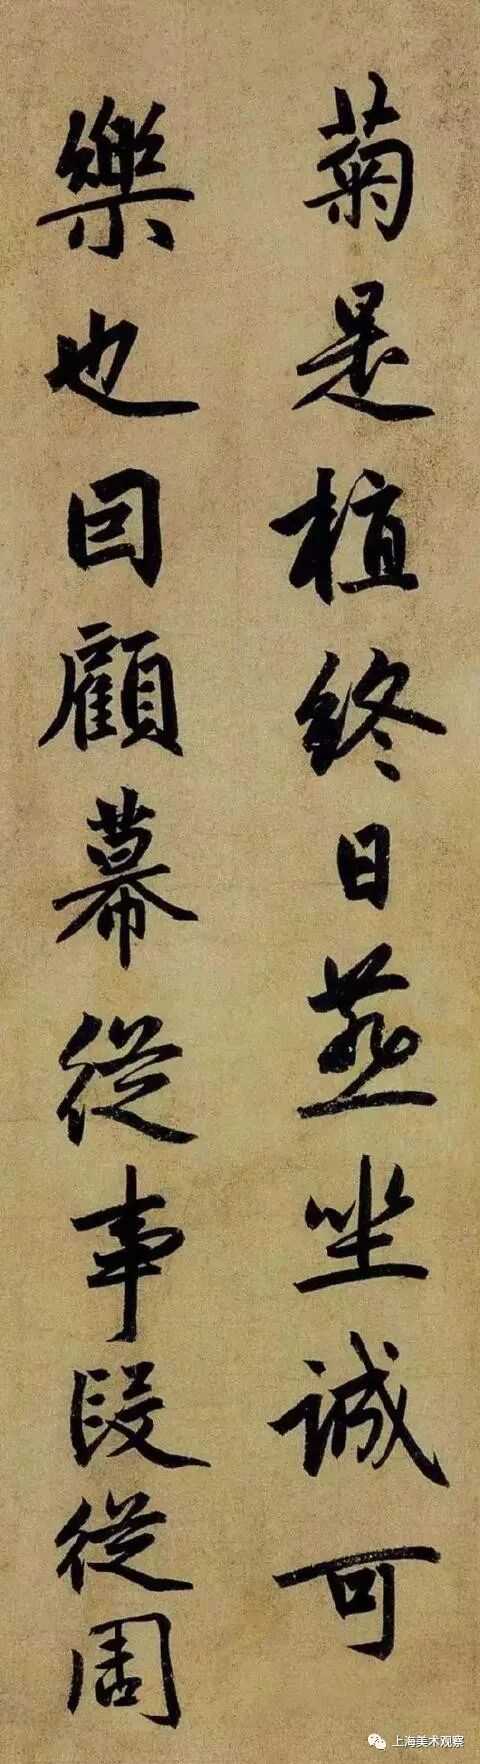 菊是植終日燕坐誠可
樂也因顧幕從事段從周
上海美术观察